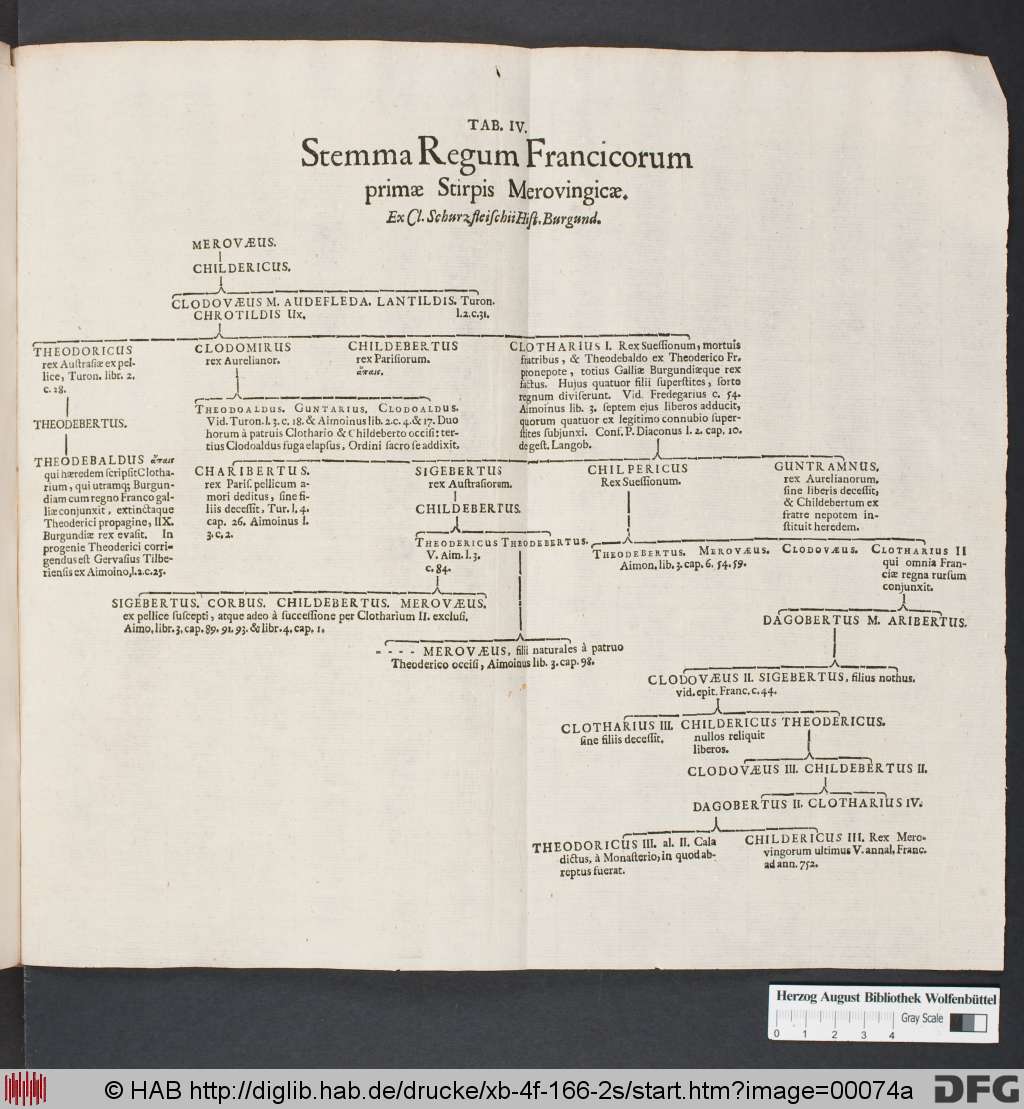 TAB. IV.
Stemma Regum Francicorum
primæ Stirpis Merovingicæ.
Ex Cl. Schurzfleischii Hist. Burgund.
MEROVÆUS.
CHILDERICUS.
CLODOVÆUS M. AUDEFLEDA. LANTILDIS. Turon.
CHROTILDIS Ux. l.2.c.31.
THEODORICUS
rex Austrasiæ ex pel-
lice, Turon. libr. 2.
c. 28.
THEODEBERTUS.
THEODEBALDUS ἄπαις
qui hæredem scripsit Clotha-
rium, qui utramq; Burgun-
diam cum regno Franco gal-
liæ conjunxit, extinctaque
Theoderici propagine, IIX.
Burgundiæ rex evasit. In
progenie Theoderici corri-
gendus est Gervasius Tilbe-
riensis ex Aimoino, l.2.c.25.
CLODOMIRUS
rex Aurelianor.
CHILDEBERTUS
rex Parisiorum.
ἄπαις.
CLOTHARIUS I. Rex Suessionum, mortuis
fratribus, & Theodebaldo ex Theoderico Fr.
pronepote, totius Galliæ Burgundiæque rex
factus. Hujus quatuor filii superstites, sorto
regnum diviserunt. Vid. Fredegarius c. 54.
Aimoinus lib. 3. septem ejus liberos adducit,
quorum quatuor ex legitimo connubio super-
stites subjunxi. Conf. P. Diaconus l. 2. cap. 10.
de gest. Langob.
THEODOALDUS. GUNTARIUS. CLODOALDUS.
Vid. Turon. l. 3. c. 18. & Aimoinus lib. 2. c. 4. & 17. Duo
horum à patruis Clothario & Childeberto occisi: ter-
tius Clodoaldus fuga elapsus, Ordini sacro se addixit.
CHARIBERTUS.
rex Paris. pellicum a-
mori deditus, sine fi-
liis decessit, Tur. l. 4.
cap. 26. Aimoinus l.
3. c, 2.
SIGEBERTUS
rex Austrasiorum.
CHILDEBERTUS.
CHILPERICUS
Rex Suessionum.
GUNTRAMNUS,
rex Aurelianorum,
sine liberis decessit,
& Childebertum ex
fratre nepotem in-
stituit heredem.
THEODERICUS THEODEBERTUS.
V. Aim. l. 3.
c. 84.
THEODEBERTUS. MEROVÆUS. CLODOVÆUS. CLOTHARIUS II
Aimon. lib. 3. cap. 6. 54. 59.
qui omnia Fran-
ciæ regna rursum
conjunxit.
SIGEBERTUS. CORBUS. CHILDEBERTUS. MEROVÆUS.
ex pellice suscepti, atque adeo à successione per Clotharium II. exclusi,
Aimo, libr. 3. cap. 89. 91. 93. & libr. 4. cap. 1.
- - - - MEROVÆUS, filii naturales à patruo
Theoderico occisi, Aimoinus lib. 3. cap. 98.
DAGOBERTUS M. ARIBERTUS.
CLODOVÆUS II. SIGEBERTUS, filius nothus.
vid. epit. Franc. c. 44.
CLOTHARIUS III. CHILDERICUS THEODERICUS.
sine filiis decessit. nullos reliquit
liberos.
CLODOVÆUS III. CHILDEBERTUS II.
DAGOBERTUS II. CLOTHARIUS IV.
THEODORICUS III. al. II. Cala
dictus, à Monasterio, in quod ab-
reptus fuerat.
CHILDERICUS III. Rex Mero-
vingorum ultimus V. annal. Franc.
ad ann. 752.
Herzog August Bibliothek Wolfenbüttel
Gray Scale
0 1 2 3 4
© HAB http://diglib.hab.de/drucke/xb-4f-166-2s/start.htm?image=00074a
DFG